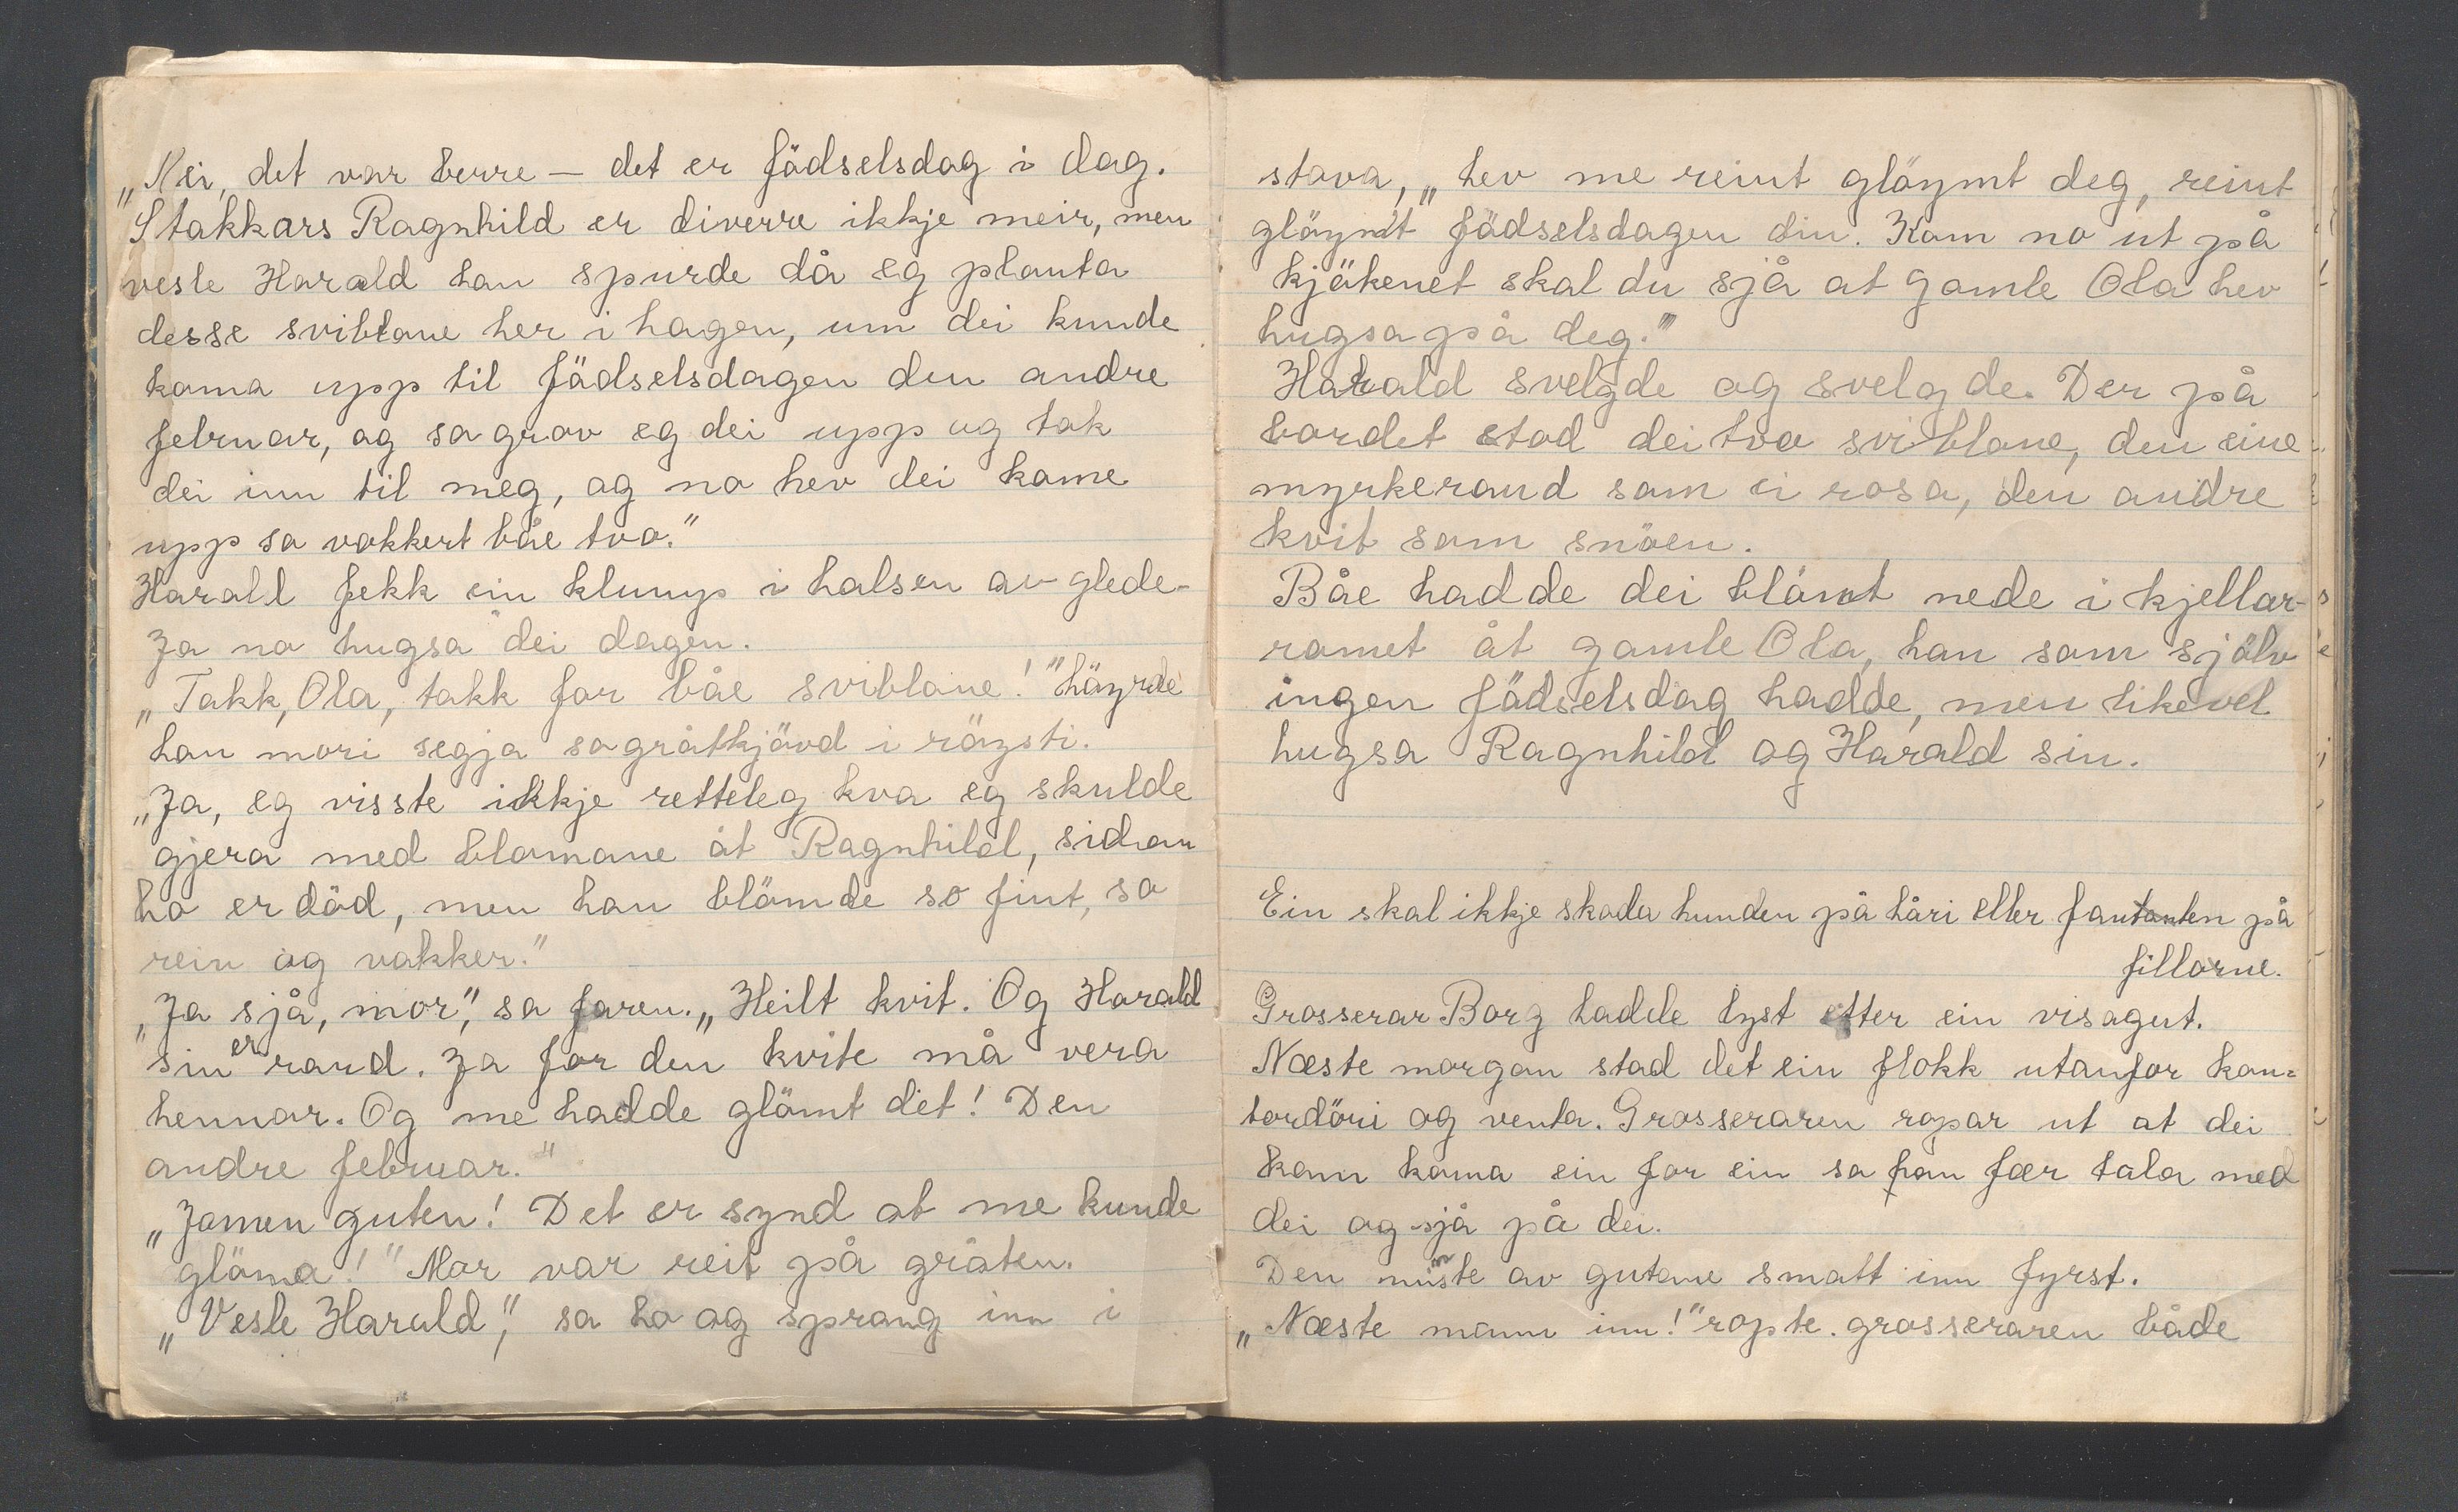 „Nei, det var berre — det er fädselsdag i dag.
Stakkars Ragnhild er diverre ikkje meir, men
vesle Harald han spurde då eg planta
desse sviblane her i hagen, um dei kunde
koma upp til fädselsdagen den andre
februar, og so grov eg dei upp og tok
dei inn til meg, og no hev dei kome
upp so vakkert båe tvo."
Harald fekk ein klump i halsen av glede-
Ja no hugsa dei dagen.
„Takk, Ola, takk for båe sviblane!" häyrde
han mori segja so gråtkjävd i räysti.
„Ja, eg visste ikkje retteleg kva eg skulde
gjera med blomane åt Ragnhild, sidan
ho er död, men han blömde so fint, so
rein og vakker."
„Ja sjå, mor", sa faren. „Heilt kvit. Og Harald
sin er raud. Ja for den kvite må vera
hennar. Og me hadde glömt det! Den
andre februar."
„Jamen guten! Det er synd at me kunde
glöma!" Mor var reit på gråten.
„Vesle Harald", sa ho og sprang inn i
stova, „hev me reint glöymt deg, reint
glöymt fädselsdagen din. Kom no ut på
kjäkenet skal du sjå at gamle Ola hev
hugsa på deg."
Harald svelgde og svelgde. Der på
bordet stod dei tvo sviblane, den eine
myrkeraud som ei rosa, den andre
kvit som snöen.
Båe hadde dei blömt nede i kjellar-
romet åt gamle Ola, han som sjölv
ingen fädselsdag hadde, men likevel
hugsa Ragnhild og Harald sin.
Ein skal ikkje skada hunden på håri eller fanten på
fillorne.
Grosserar Borg hadde lyst etter ein visagut.
Næste morgon stod det ein flokk utanfor kon=
tordöri og venta. Grosseraren ropar ut at dei
kann koma ein for ein so han fær tala med
dei og sjå på dei.
Den minste av gutane smatt inn fyrst.
„Næste mann inn!" ropte grosseraren både